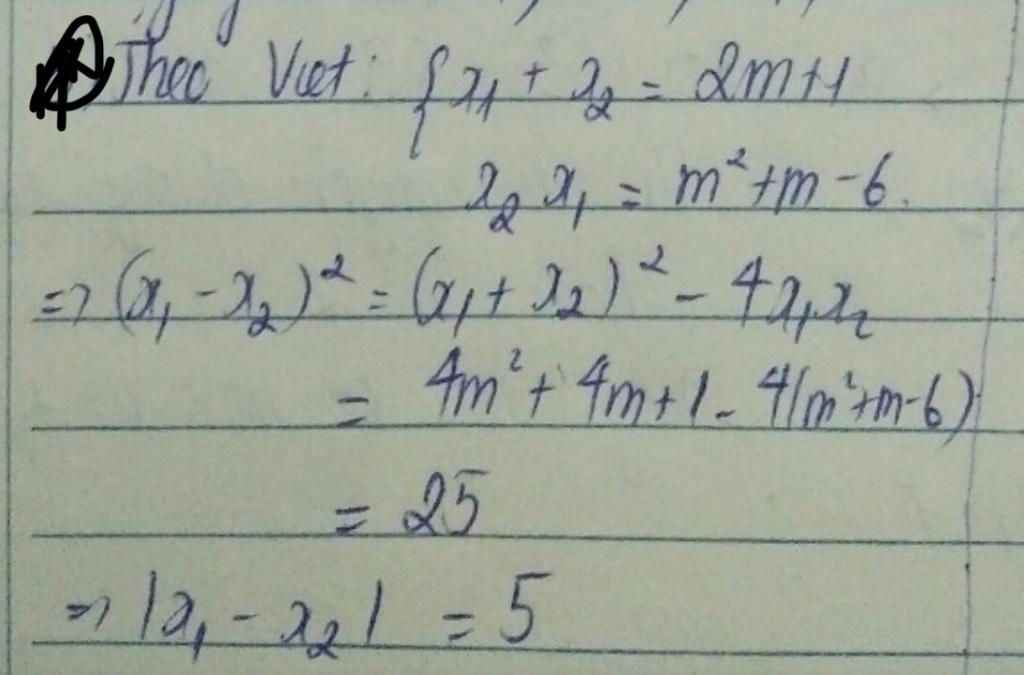 Theo Viet: { x₁ + x₂ = 2m+1
x₂ x₁ = m² + m - 6.
=> (x₁ - x₂)² = (x₁ + x₂)² - 4x₁x₂
= 4m² + 4m + 1 - 4(m² + m - 6)
= 25
=> |x₁ - x₂| = 5